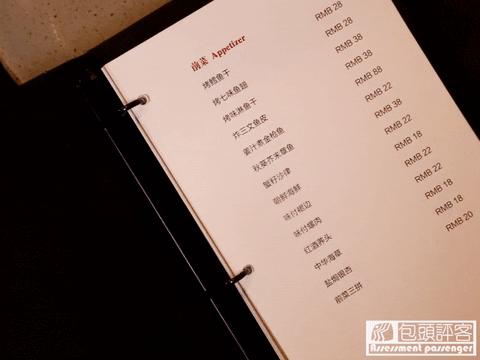 前菜 Appetizer
烤鳕鱼干 RMB 28
烤七味鱼翅 RMB 28
烤味淋鱼干 RMB 38
炸三文鱼皮 RMB 38
姜汁煮金枪鱼 RMB 88
秋葵芥末章鱼 RMB 22
蟹籽沙律 RMB 38
朝鲜海鲜 RMB 22
味付裙边 RMB 18
味付螺肉 RMB 22
红酒荞头 RMB 22
中华海草 RMB 18
盐焗银杏 RMB 18
前菜三拼 RMB 20
包頭評客
Assessment passenger